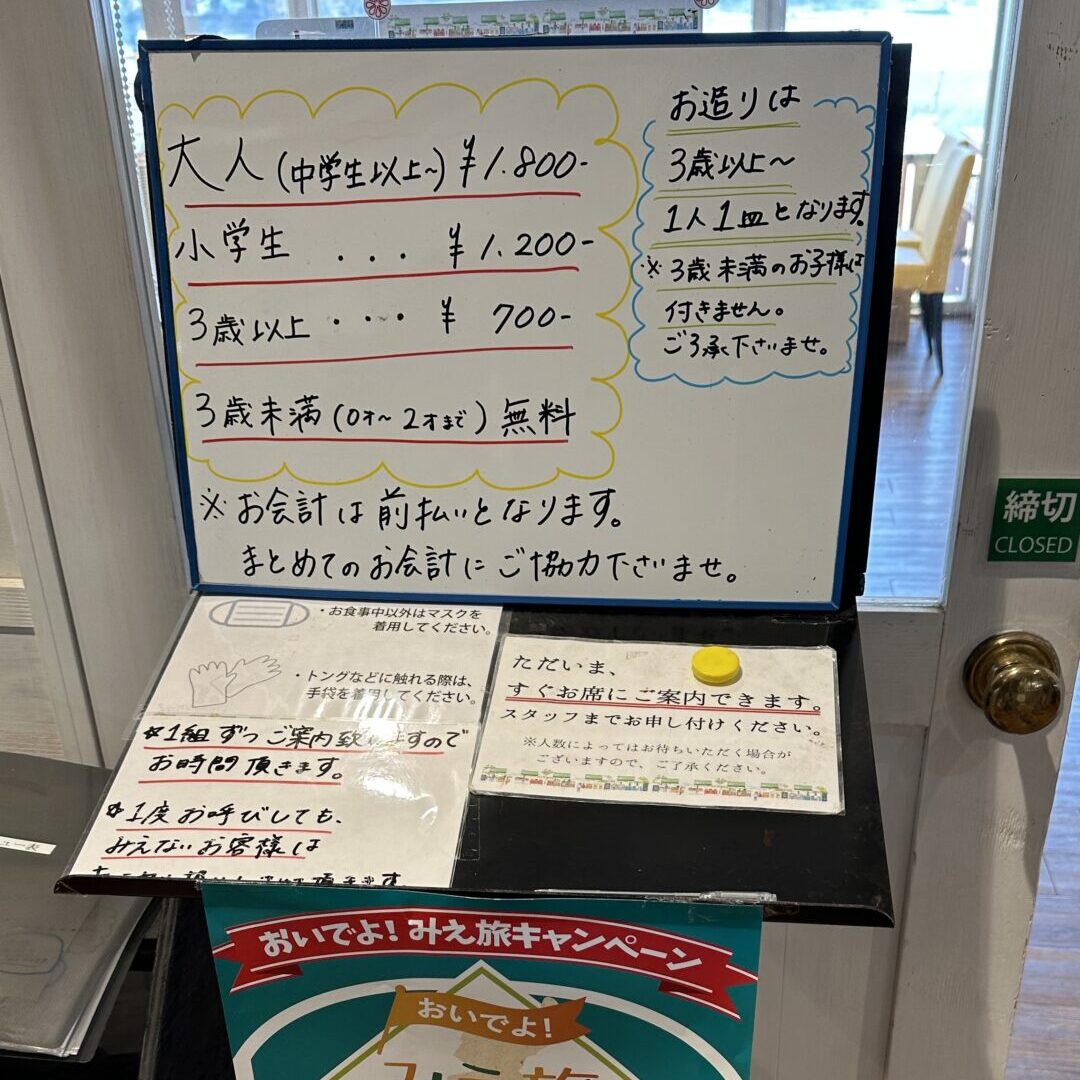 大人(中学生以上~)¥1.800-
小学生 ... ¥1.200-
3歳以上 ・・・ ¥ 700-
3歳未満(0才~2才まで)無料
※お会計は前払いとなります。
まとめてのお会計にご協力下さいませ。
お造りは
3歳以上~
1人1皿となります。
※3歳未満のお子様は
付きません。
ご了承下さいませ。
・お食事中以外はマスクを
着用してください。
・トングなどに触れる際は、
手袋を着用してください。
※1組ずつご案内致しますので
お時間頂きます。
※1度お呼びしても、
みえないお客様は
ただいま、
すぐお席にご案内できます。
スタッフまでお申し付けください。
※人数によってはお待ちいただく場合が
ございますので、ご了承ください。
締切
CLOSED
おいでよ!みえ旅キャンペーン
おいでよ!